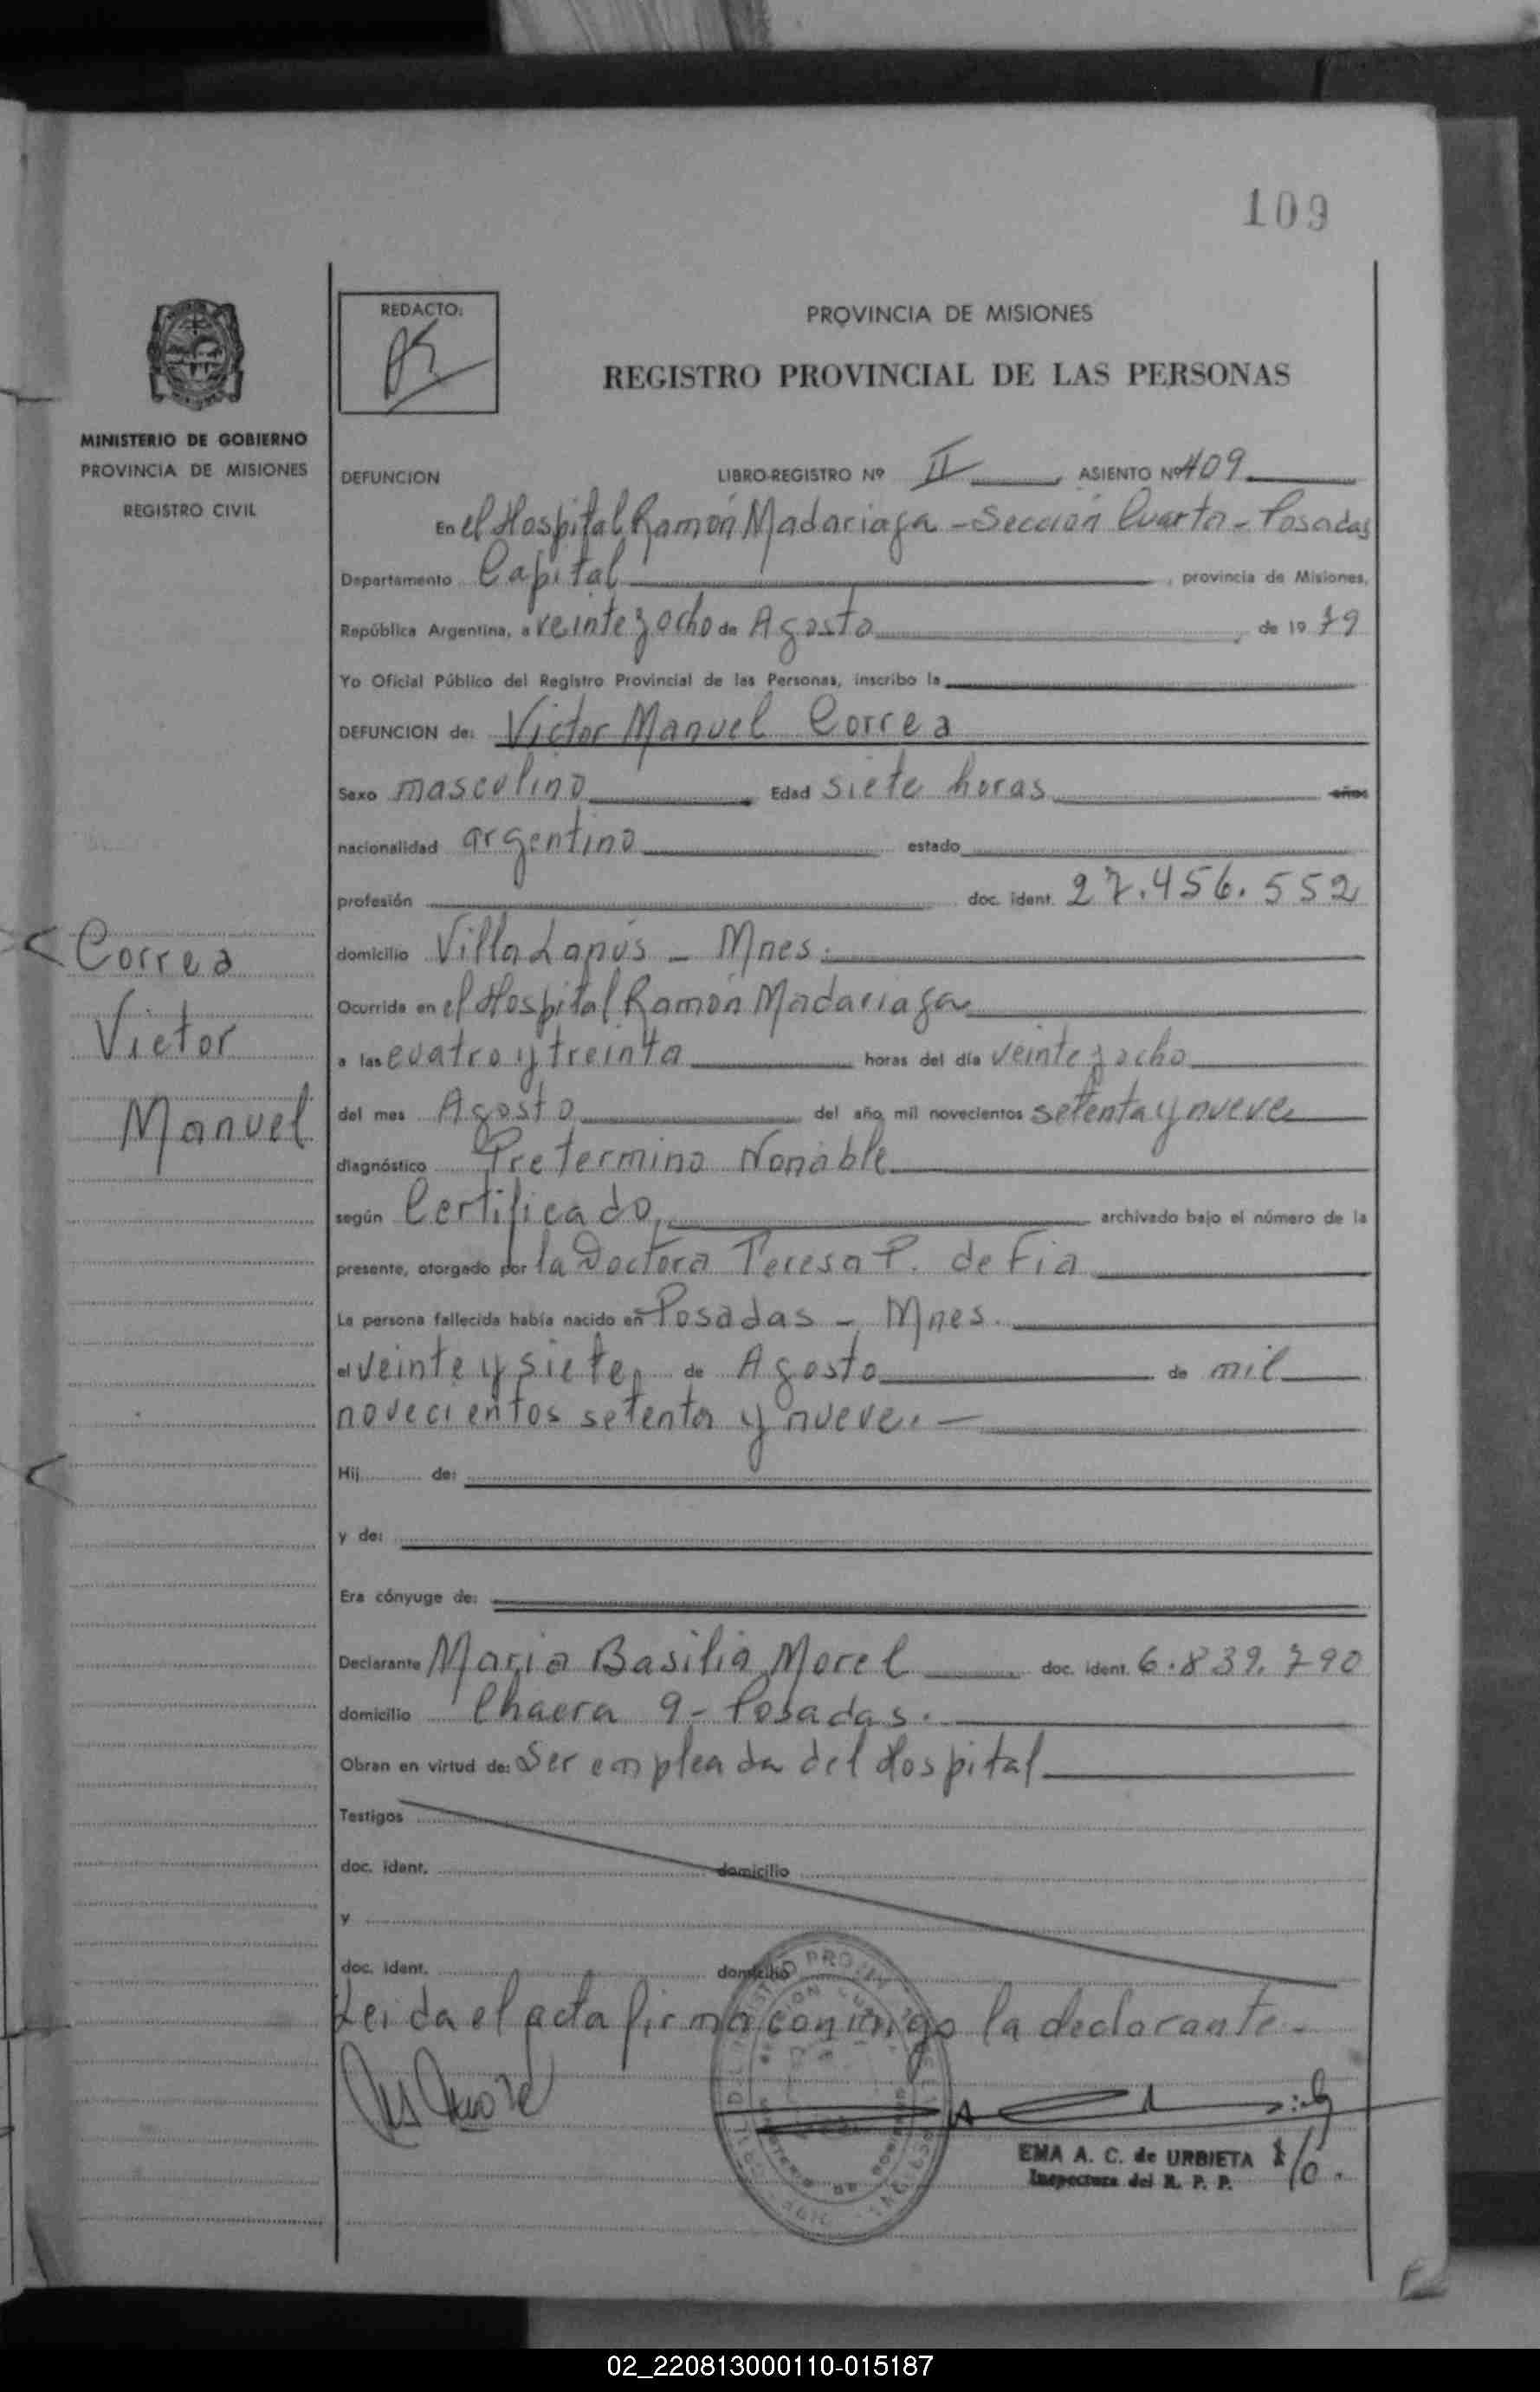 109
REDACTO:
PROVINCIA DE MISIONES
REGISTRO PROVINCIAL DE LAS PERSONAS
MINISTERIO DE GOBIERNO
PROVINCIA DE MISIONES
REGISTRO CIVIL
DEFUNCION LIBRO-REGISTRO Nº II ASIENTO Nº 409
En el Hospital Ramón Madariaga - Sección Cuarta - Posadas
Departamento Capital, provincia de Misiones,
República Argentina, a veinte y ocho de Agosto, de 19 79
Yo Oficial Público del Registro Provincial de las Personas, inscribo la
DEFUNCION de: Victor Manuel Correa
Sexo masculino Edad siete horas años
nacionalidad argentino estado
profesión doc. ident. 27.456.552
domicilio Villa Lanús - Mnes.
Ocurrida en el Hospital Ramón Madariaga
a las cuatro y treinta horas del día veinte y ocho
del mes Agosto del año mil novecientos setenta y nueve
diagnóstico Pretermino Nonable
según Certificado, archivado bajo el número de la
presente, otorgado por la Doctora Teresa P. de Fia
La persona fallecida había nacido en Posadas - Mnes.
el veinte y siete de Agosto de mil
novecientos setenta y nueve. -
Hij de:
y de:
Era cónyuge de:
Declarante Maria Basilia Morel doc. ident. 6.839.790
domicilio Chacra 9 - Posadas.
Obran en virtud de: Ser empleada del Hospital
Testigos
doc. ident. domicilio
y
doc. ident. domicilio
Leida el acta firma conmigo la declarante -
EMA A. C. de URBIETA
Inspectora del R. P. P.
Correa
Victor
Manuel
02_220813000110-015187